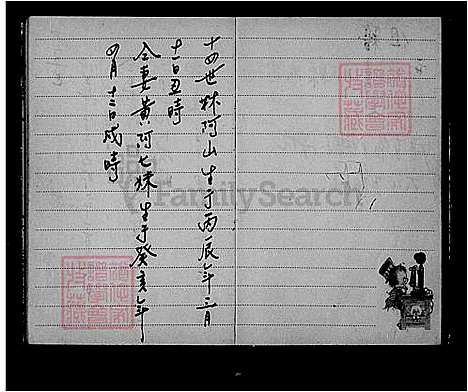 十四世林阿山生于丙辰年三月
十一日丑時
仝妻黃阿七妹生于癸亥年
四月十二日戍時
FamilySearch